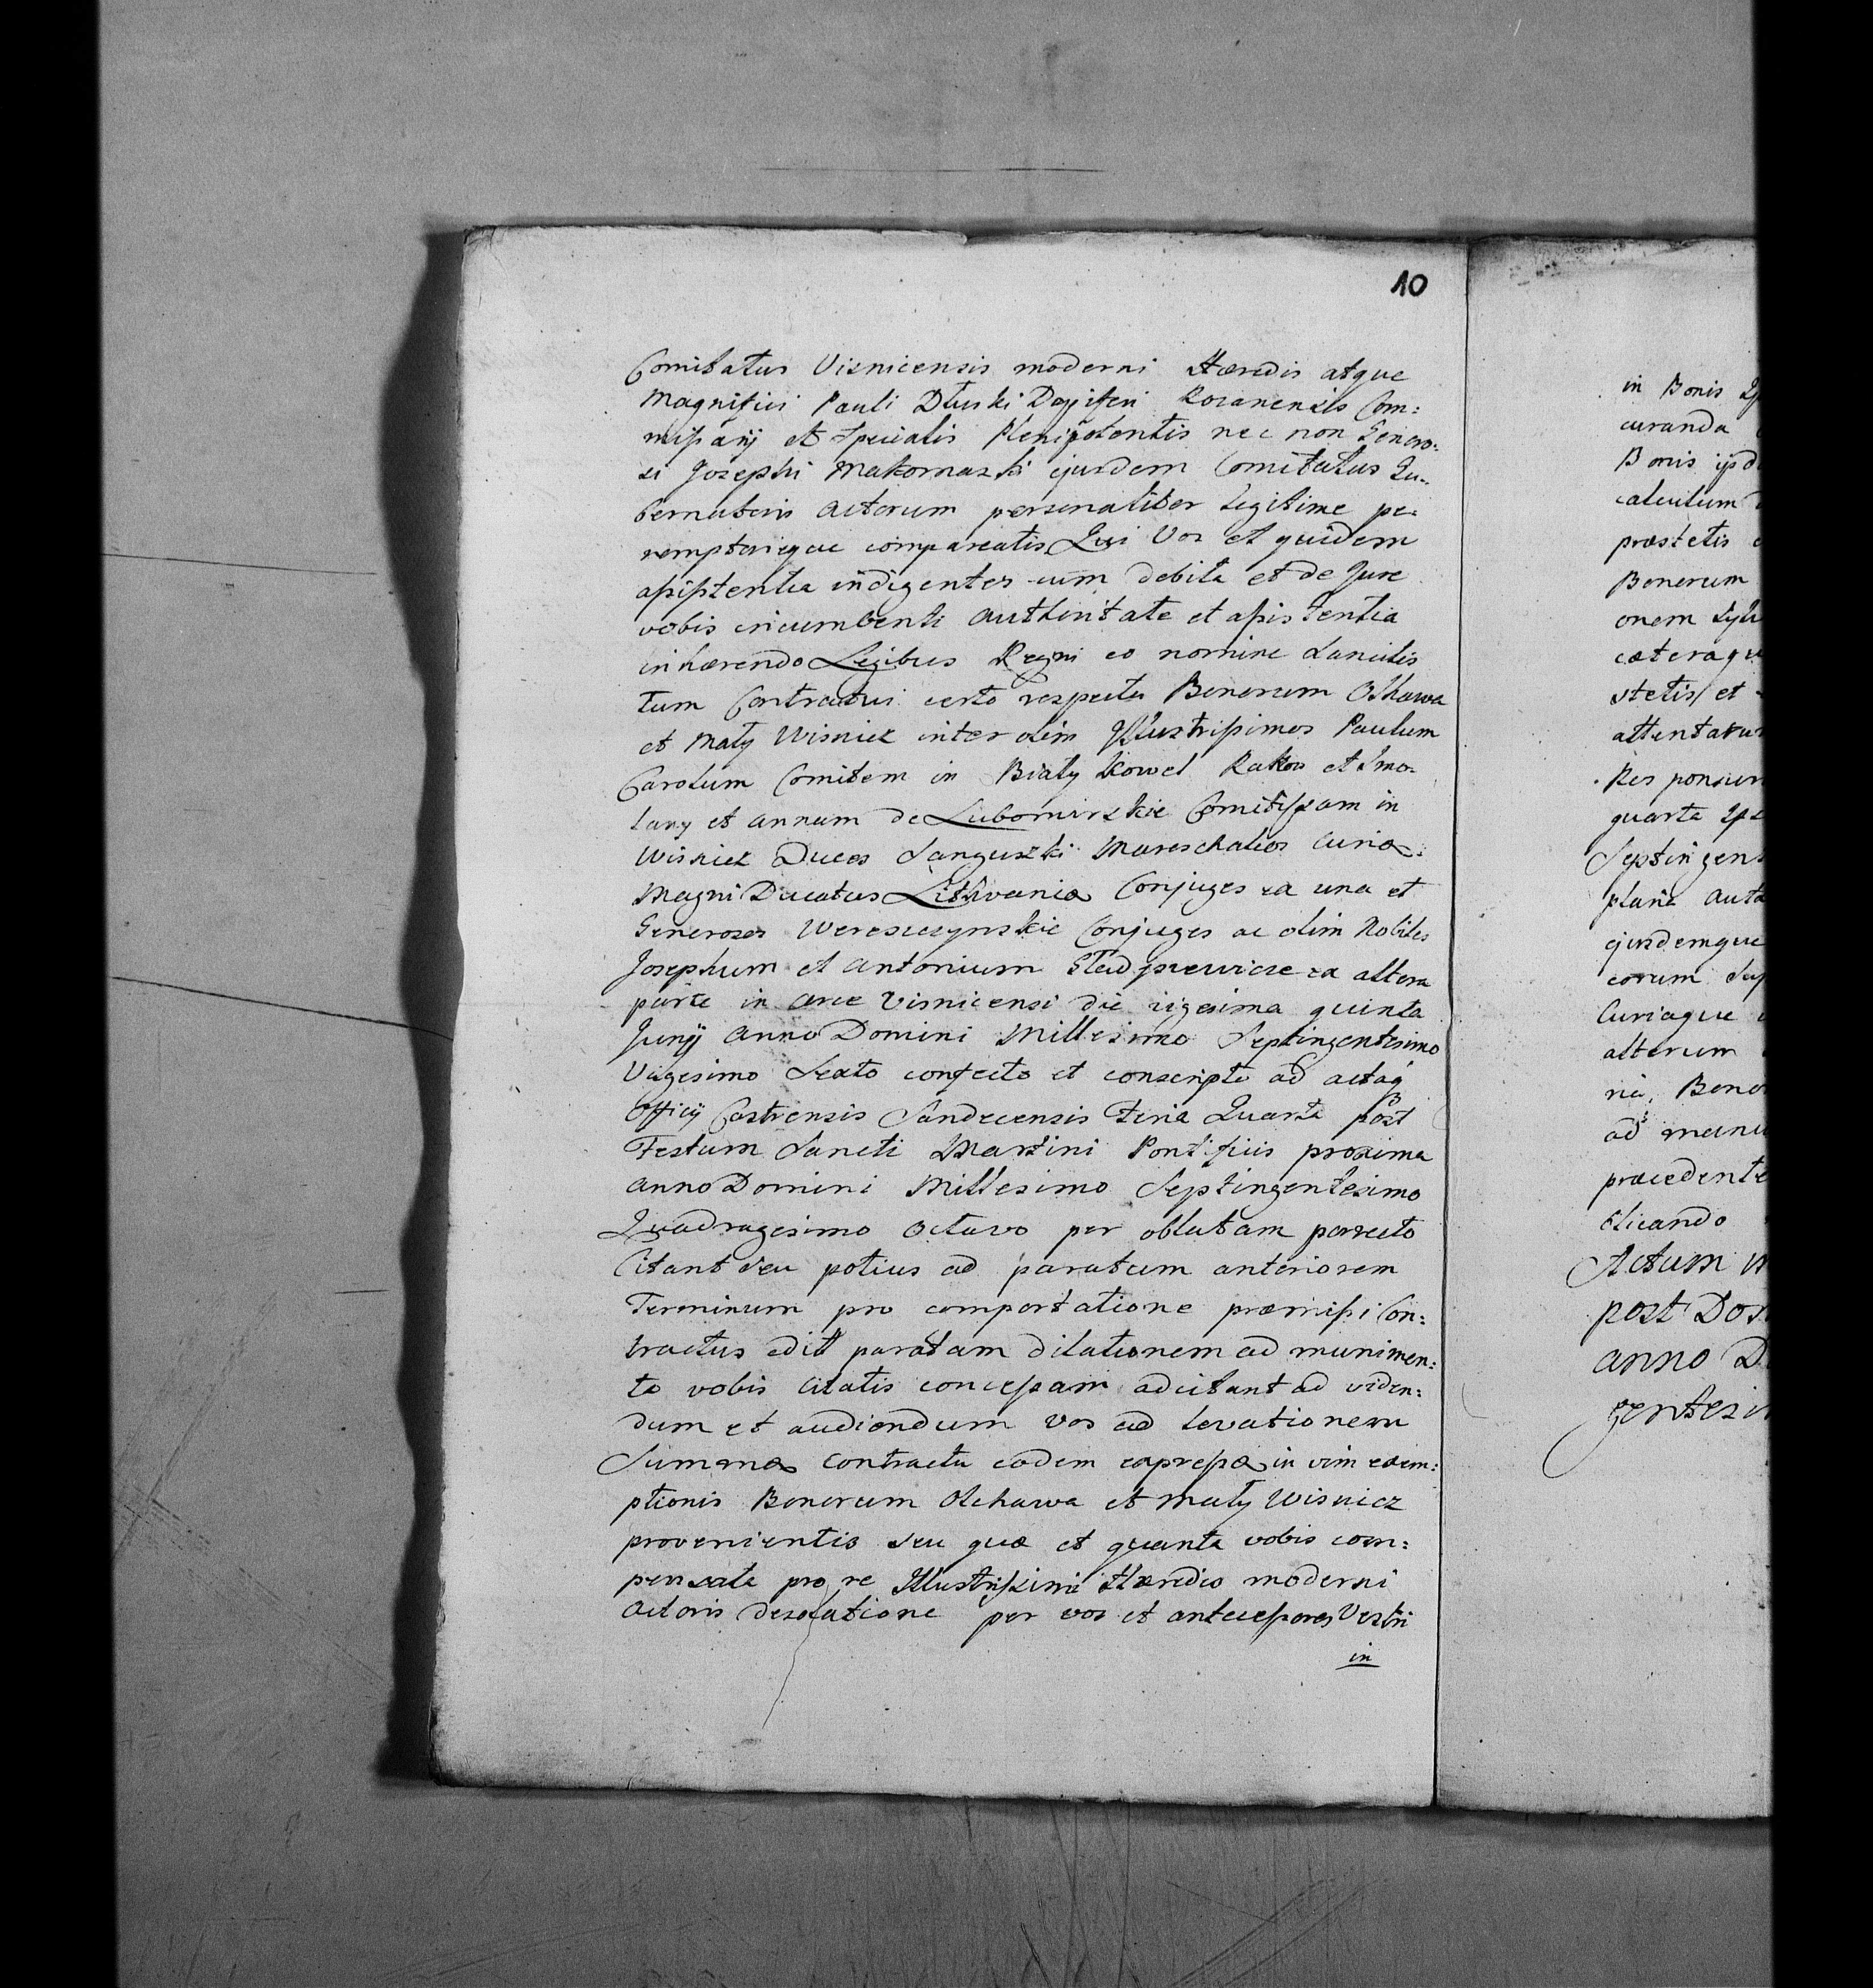 10
Comitatus Visnicensis moderni Hæredis atque
Magnifici Pauli Dłuski Dapiferi Rosanensis Com:
missarij et Specialis Plenipotentis nec non Genero:
si Josephi Makomaski ejusdem Comitatus Gu:
bernatoris Actorum personaliter legitime pe:
remptorieque compareatis Qui Vos et quidem
assistentia indigentes cum debita et de Jure
vobis incumbenti Authoritate et assistentia
inhærendo Legibus Regni eo nomine Sancitis
tum Contractui certo respectu Bonorum Olchawa
et Mały Wisnicz inter olim Illustrissimos Paulum
Carolum Comitem in Biały Kowel Rakow et Smo:
lany et Annam de Lubomirskie Comitissam in
Wisnicz Duces Sanguszki Mareschalcos Curiæ
Magni Ducatus Lithvaniæ Conjuges ex una et
Generosos Wereszczynskie Conjuges ac olim Nobiles
Josephum et Antonium ex altera
parte in Arce Visnicensi die vigesima quinta
Junij Anno Domini Millesimo Septingentesimo
Vigesimo Sexto confecto et conscripto ad actaq3
Officij Castrensis Sandecensis Feria Quarta post
Festum Sancti Martini Pontificis proxima
Anno Domini Millesimo Septingentesimo
Quadragesimo Octavo per oblatam porrecto
Citant seu potius ad paratum anteriorem
Terminum pro comportatione præmissi Con:
tractus edit paratam dilationem ad munimen:
ta vobis Citatis concessam adcitant ad viden:
dum et audiendum vos ad levationem
Summæ Contractu eodem expressæ in vim exem:
ptionis Bonorum Olchawa et Mały Wisnicz
provenientis seu quæ et quanta vobis com:
pensata pro re Illustrissimi Hæredis moderni
Actoris desolatione per vos et antecessores Vestri
in
in Bonis
curanda
Bonis
calculum
præstetis
Bonorum
onem
cæteraque
stetis et
Responsur
quarta
Septingen
ejusdemque
eorum
Curiæque
alterum
Bono
ad manu
præcedente
Actum
post Dom
anno D
gentesi